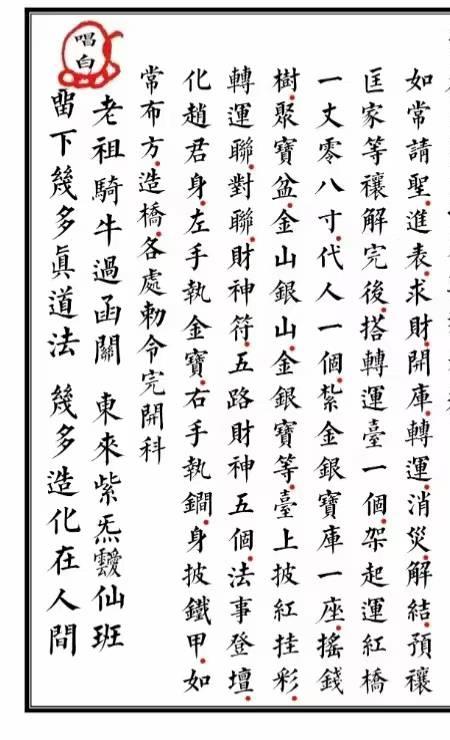 如常請聖進表求財開庫轉運消災解結預禳
匡家等禳解完後搭轉運臺一個架起運紅橋
一丈零八寸代人一個紮金銀寶庫一座搖錢
樹聚寶盆金山銀山金銀寶等臺上披紅挂彩
轉運聯對聯財神符五路財神五個法事登壇
化趙君身左手執金寶右手執鐧身披鐵甲如
常布方造橋各處勅令完開科
唱白
老祖騎牛過函關 東來紫炁靉仙班
畱下幾多眞道法 幾多造化在人間